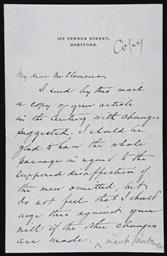 103 VERNON STREET,
HARTFORD.
Copy
My dear Mr Clemens,
I send by this mail
a copy of your article
in the Century with changes
suggested. I should be
glad to have the whole
passage in regard to the
supposed disaffection of
the men omitted, but
do not feel that I should
urge this against your
will if the other changes
are made.